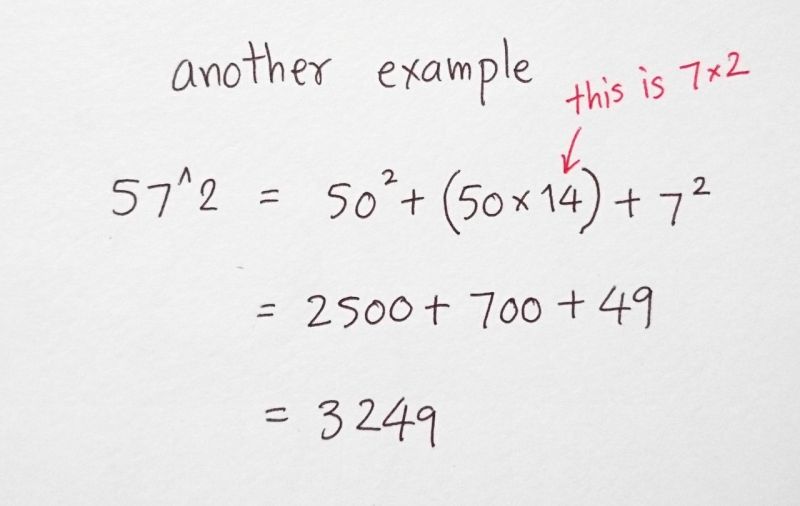 another example
this is 7×2
57^2 = 50² + (50×14) + 7²
= 2500 + 700 + 49
= 3249